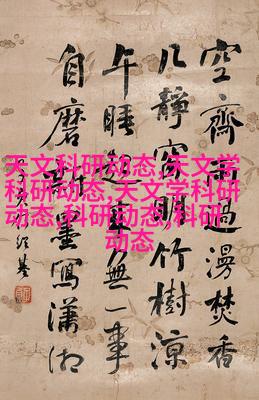 空齋雨過漫焚香
几靜窗明竹樹涼
午睡起來無一事
自磨新墨寫瀟湘
天文科研动态,天文学
科研动态,天文学科研
动态,科研动态,科研
动态